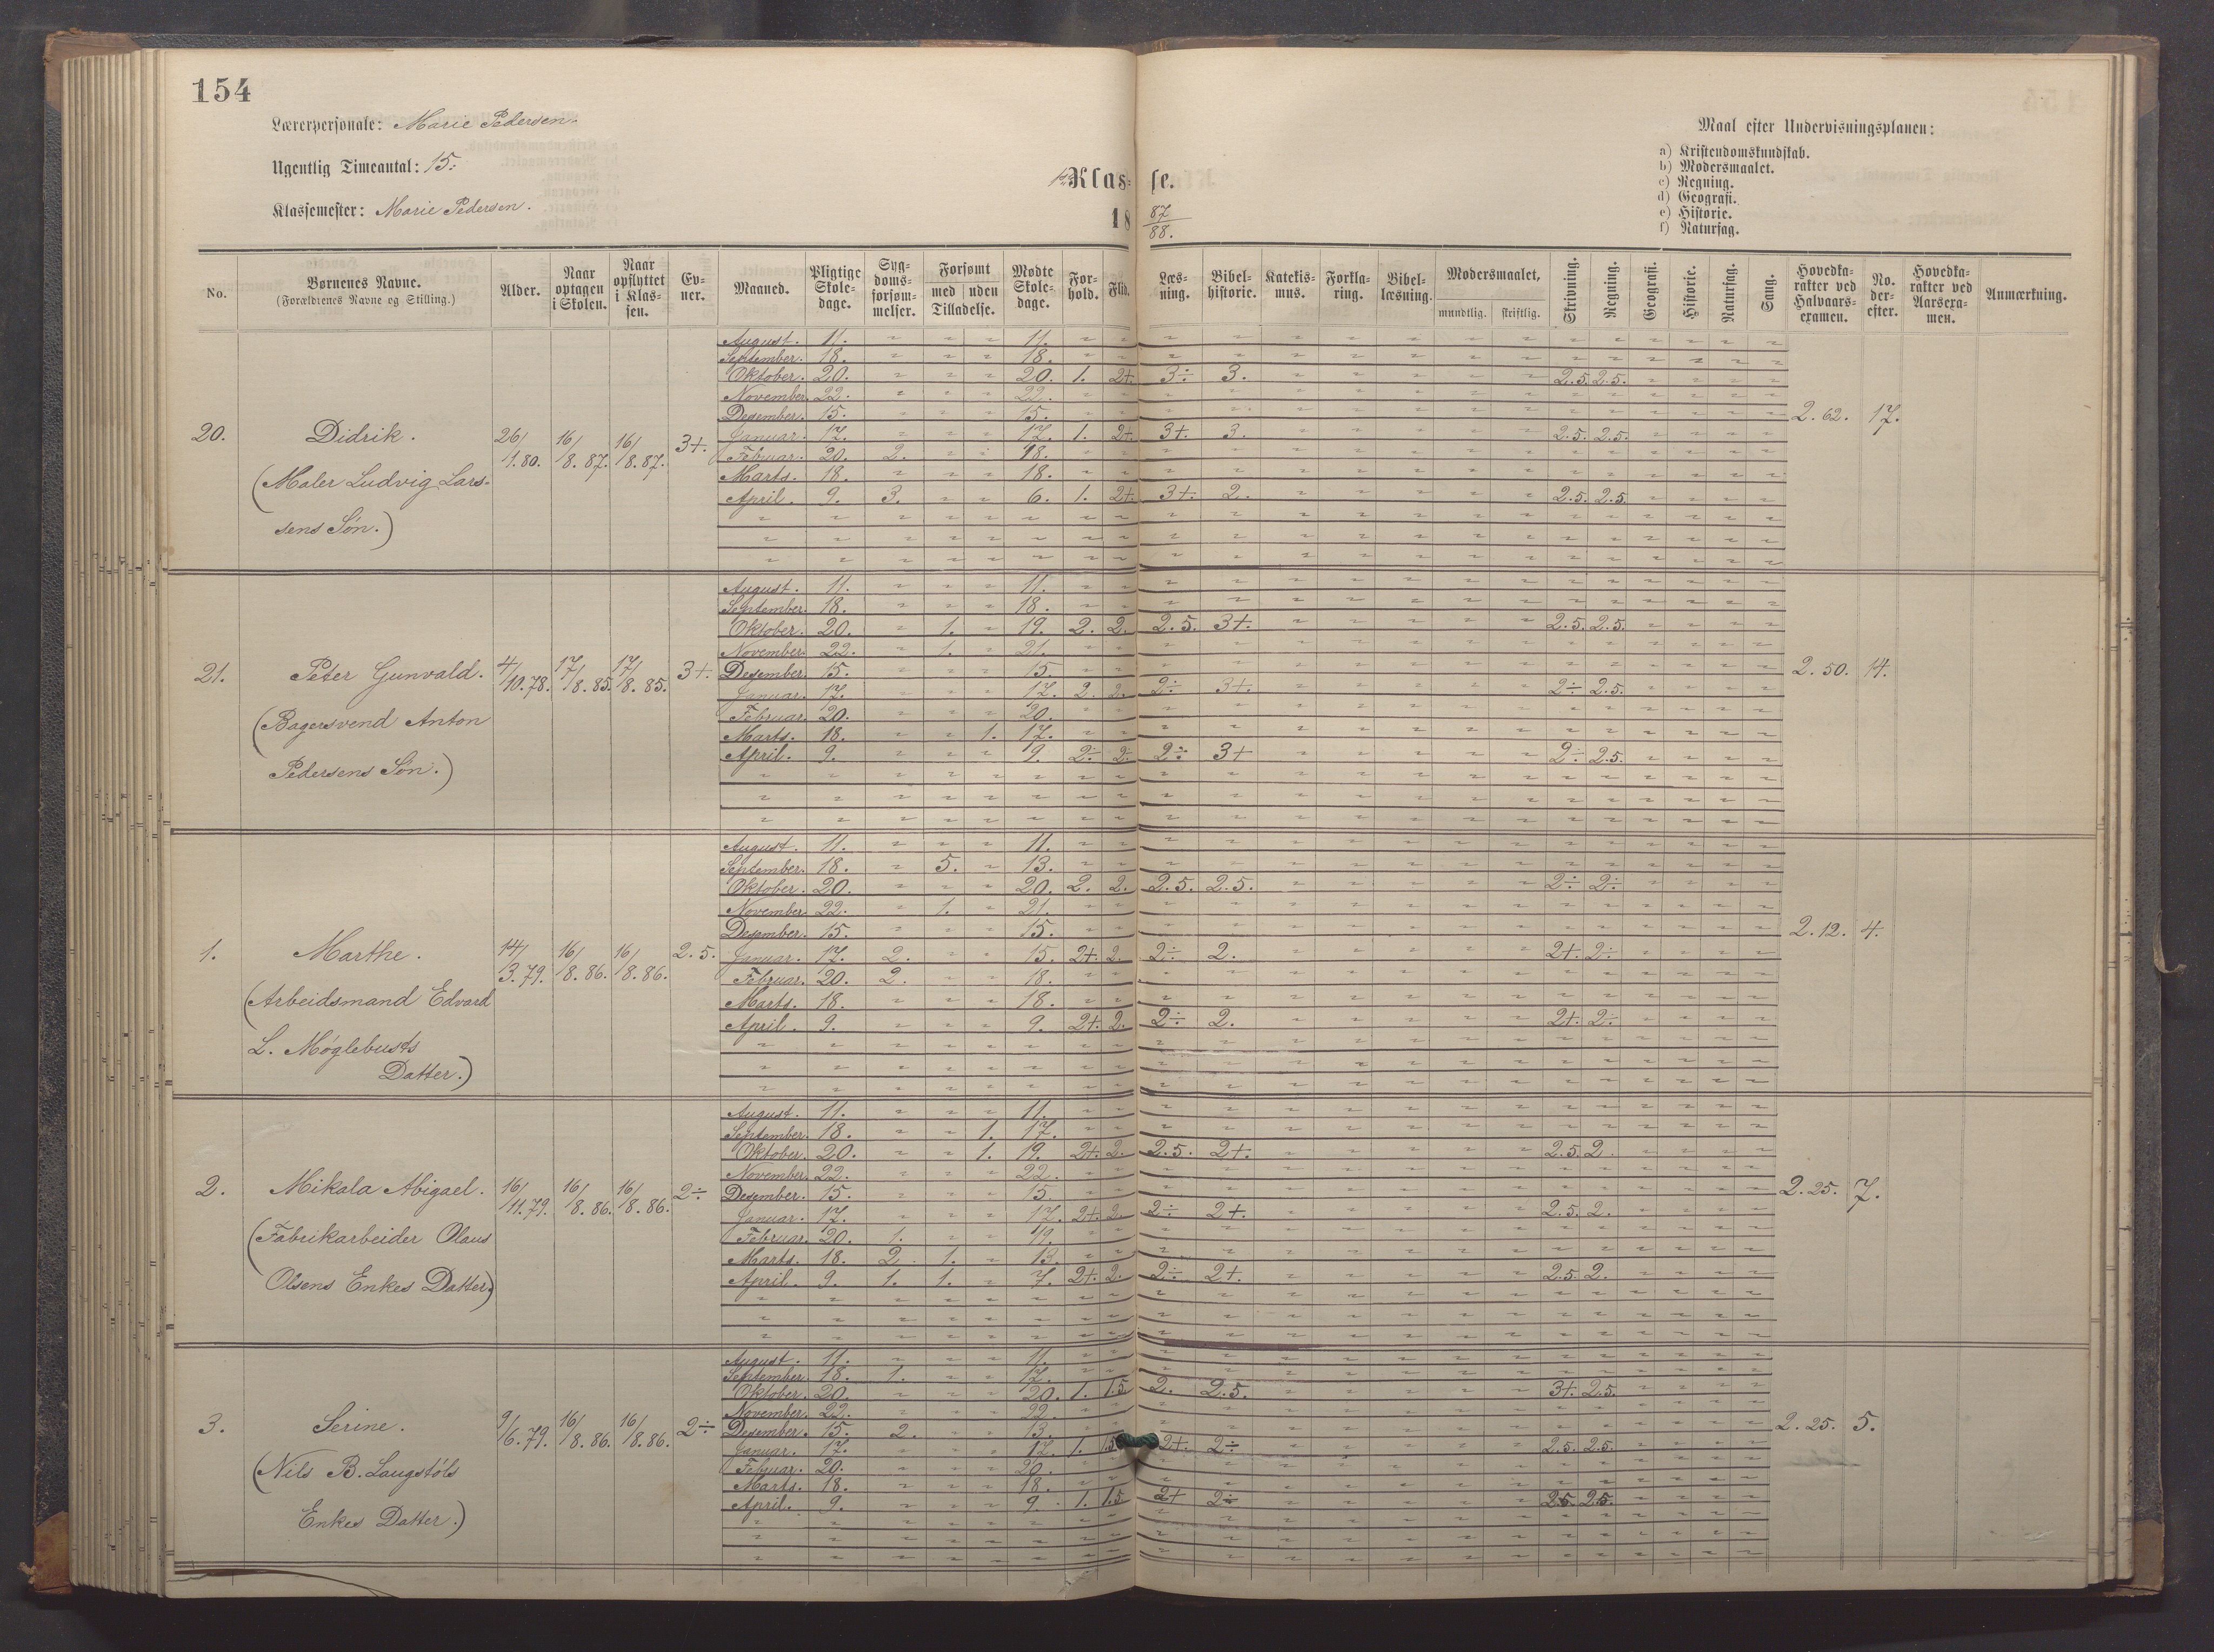 154
Lærerpersonale: Marie Pedersen.
Ugentlig Timeantal: 15.
Klassemester: Marie Pedersen.
Klas- se.
18 87/88.
Maal efter Undervisningsplanen:
a) Kristendomskundskab.
b) Modersmaalet.
c) Regning.
d) Geografi.
e) Historie.
f) Naturfag.
No. Børnenes Navne. (Forældrenes Navne og Stilling.) Alder. Naar optagen i Skolen. Naar opflyttet i Klassen. Evner. Maaned. Pligtige Skoledage. Sygdomsforsømmelser. Forsømt med uden Tilladelse. Mødte Skoledage. Forhold. Flid. Læsning. Bibelhistorie. Katekismus. Forklaring. Bibellæsning. Modersmaalet, mundtlig. skriftlig. Skrivning. Regning. Geografi. Historie. Naturfag. Sang. Hovedkarakter ved Halvaarsexamen. No. derefter. Hovedkarakter ved Aarsexamen. Anmærkning.
20. Didrik. (Maler Ludvig Larssens Søn.) 26/1.80. 16/8.87. 16/8.87. 3+. 2.62. 17.
August. 11. " " " 11. " "
September. 18. " " " 18. " "
Oktober. 20. " " " 20. 1. 2+. 3÷ 3. 2.5. 2.5.
November. 22. " " " 22. " "
Desember. 15. " " " 15. " "
Januar. 17. " " " 17. 1. 2+. 3+. 3. 2.5. 2.5.
Februar. 20. 2. " " 18. " "
Marts. 18. " " " 18. " "
April. 9. 3. " " 6. 1. 2+. 3+. 2. 2.5. 2.5.
21. Peter Gunvald. (Bagersvend Anton Pedersens Søn.) 4/10.78. 17/8.85. 17/8.85. 3+. 2.50. 14.
August. 11. " " " 11. " "
September. 18. " " " 18. " "
Oktober. 20. " 1. " 19. 2. 2. 2.5. 3+. 2.5. 2.5.
November. 22. " 1. " 21. " "
Desember. 15. " " " 15. " "
Januar. 17. " " " 17. 2. 2. 2÷ 3+. 2÷ 2.5.
Februar. 20. " " " 20. " "
Marts. 18. " " 1. 17. " "
April. 9. " " " 9. 2÷ 2. 2÷ 3+ 2÷ 2.5.
1. Marthe. (Arbeidsmand Edvard L. Møglebusts Datter.) 14/3.79. 16/8.86. 16/8.86. 2.5. 2.12. 4.
August. 11. " " " 11. " "
September. 18. " 5. " 13. " "
Oktober. 20. " " " 20. 2. 2. 2.5. 2.5. 2÷ 2÷
November. 22. " 1. " 21. " "
Desember. 15. " " " 15. " "
Januar. 17. 2. " " 15. 2+. 2. 2÷ 2. 2+. 2÷
Februar. 20. 2. " " 18. " "
Marts. 18. " " " 18. " "
April. 9. " " " 9. 2+. 2. 2÷ 2. 2+. 2÷
2. Mikala Abigael. (Fabrikarbeider Olaus Olsens Enkes Datter) 16/11.79. 16/8.86. 16/8.86. 2÷ 2.25. 7.
August. 11. " " " 11. " "
September. 18. " " 1. 17. " "
Oktober. 20. " " 1. 19. 2+. 2. 2.5. 2+. 2.5. 2
November. 22. " " " 22. " "
Desember. 15. " " " 15. " "
Januar. 17. " " " 17. 2+. 2. 2÷ 2+. 2.5. 2.
Februar. 20. 1. " " 19. " "
Marts. 18. 2. 1. " 13. " "
April. 9. 1. 1. " 7. 2+. 2. 2÷ 2+. 2.5. 2.
3. Serine. (Nils B. Laugstøls Enkes Datter.) 9/6.79. 16/8.86. 16/8.86. 2÷ 2.25. 5.
August. 11. " " " 11. " "
September. 18. 1. " " 17. " "
Oktober. 20. " " " 20. 1. 1.5 2. 2.5. 3+. 2.5.
November. 22. " " " 22. " "
Desember. 15. 2. " " 13. " "
Januar. 17. " " " 17. 1. 1.5 2+. 2÷ 2.5. 2.5.
Februar. 20. " " " 20. " "
Marts. 18. " " " 18. " "
April. 9. " " " 9. 1. 1.5 2+ 2÷ 2.5. 2.5.